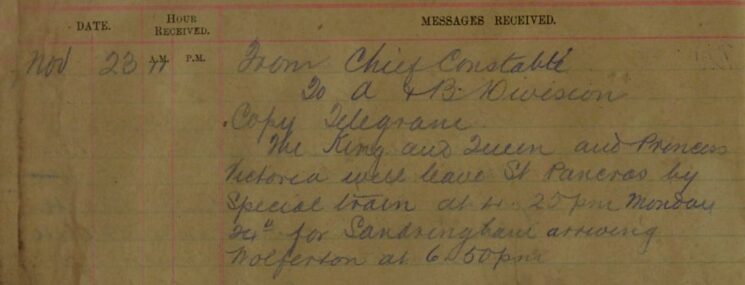 DATE. HOUR RECEIVED. MESSAGES RECEIVED.
A.M. P.M.
Nov 23 From Chief Constable
To A & B. Division
Copy Telegram
The King and Queen and Princess
Victoria will leave St Pancras by
Special train at 4. 25 pm Monday
24th for Sandringham arriving
Wolferton at 6.50pm